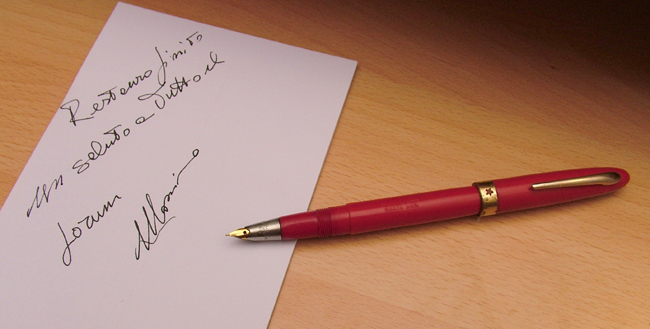 Restauro finito
un saluto a tutto il
forum